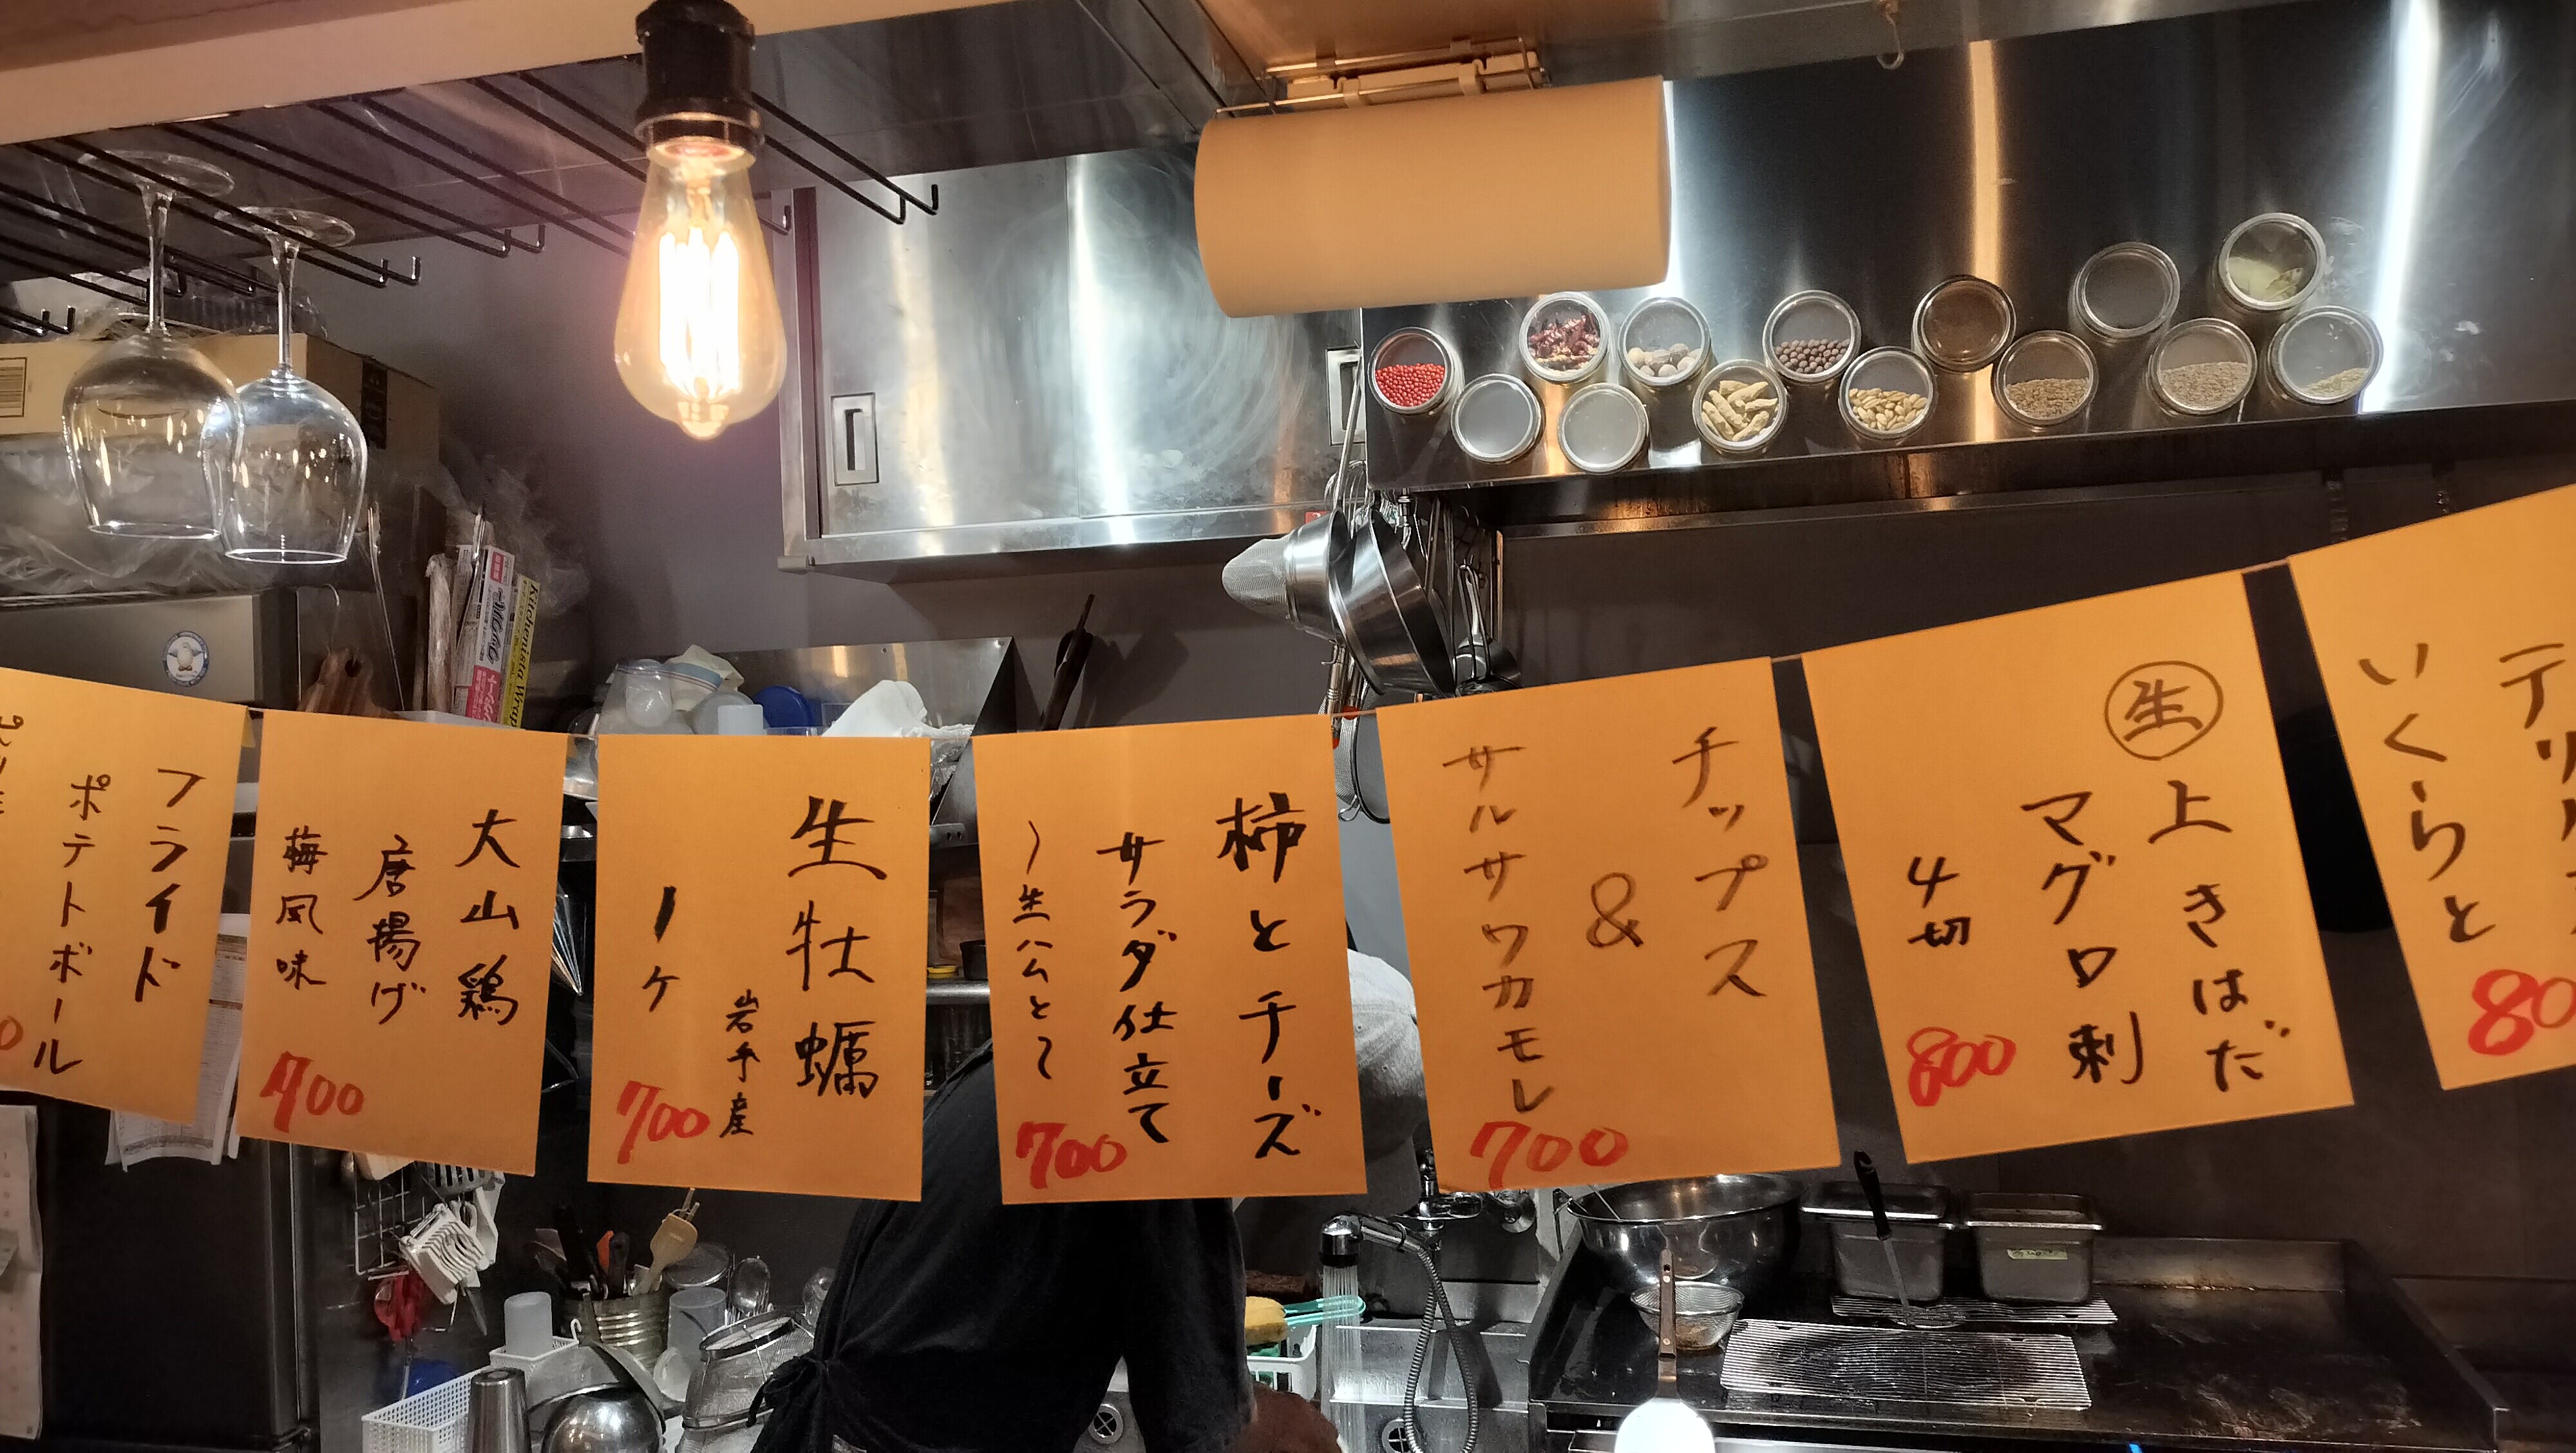 フライド
ポテトボール
大山鶏
唐揚げ
梅風味
700
生牡蠣
岩手産
1ヶ
700
柿とチーズ
サラダ仕立て
〜生ハムと〜
700
チップス
&
サルサワカモレ
700
生 上きはだ
マグロ刺
4切
800
いくらと
80
Kitchenista Wrap